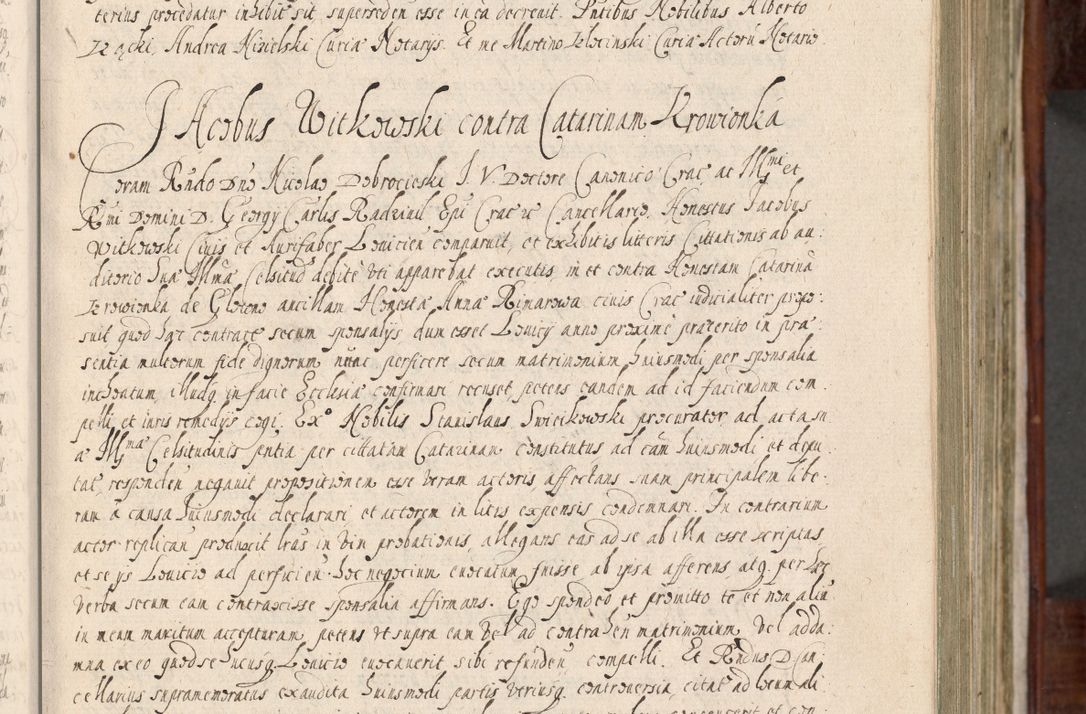 terius procedatur inhibit sit, superseden esse in ea decreuit. Pntibus Nobilibus Alberto
Andrea Curiæ Notarijs. Et me Martino Curiæ Actoru Notario
JAcobus Witkowski contra Catarinam Krowionka
Coram Rndo Dno Nicolao Dobrocieski I. V. Doctore Canonico Crac. ac Illmi et
Rmi Domini D. Georgij Carli Radziuil Epi Crac &c Cancellario. Honestus Jacobus
Witkowski Ciuis et Aurifaber Louicien comparuit, et exhibitis literis Cittationis ab au:
ditorio Suæ Illmæ Celsitud debitè vti apparebat executis, in et contra Honestam Catarina
Krowionka de ancillam Honestæ Annæ Rimarowa ciuis Crac iudicialiter propo:
suit quod hæc contracto secum sponsalijs dum esset Louicij anno proximè præterito in præ:
sentia multorum fide dignorum nunc perficere secum matrimonium huiusmodi per sponsalia
inchoatum, illudq in facie Ecclesiæ confirmari recuset, petens eandem ad id faciendum com
pelli, et iuris remedijs cogi. Exº Nobilis Stanislaus Swiecikowski procurator ad acta sn
æ Illmæ Celsitudinis pntia per cittatam Catarinam constitutus ad eam huiusmodi et depu
tat, responden negauit propositionem esse veram actoris affectans suam principalem libe:
ram à causa huiusmodi declarari et actorem in litis expensis condemnari. In contrarium
actor replican produxit lras in vim probationis, allegans eas ad se ab illa esse scriptas
et se ijs Louicio ad perficien hoc negocium euocatum fuisse ab ipsa afferens atq. per hæc
verba secum eam contraxisse sponsalia affirmans. Ego spondeo et promitto te et non aliu
in meum maritum accepturam, petens vt supra eam vel ad contrahen matrimonium, vel ad da:
mna ex eo quod se hucusq. Louicio euocauerit sibi refunden compelli. Et Rndus D. Can:
cellarius supramemoratus exaudita huiusmodi partis vtriusq. controuersia, citat ad locum ali